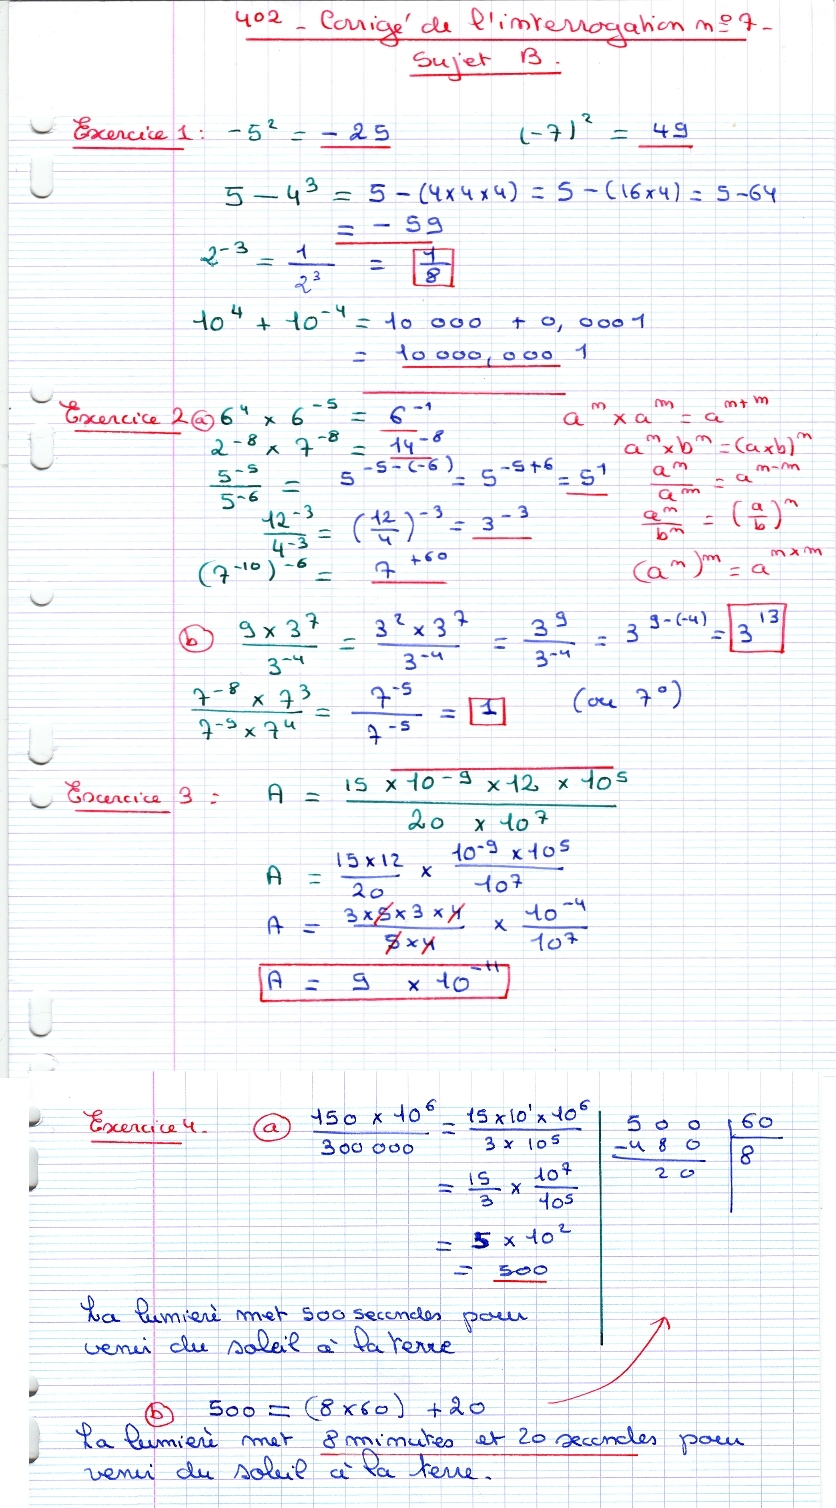 402 - Corrigé de l'interrogation nº7-
Sujet B.
Exercice 1: -5² = -25 (-7)² = 49
5 - 4³ = 5 - (4×4×4) = 5 - (16×4) = 5-64
= -59
2⁻³ = 1/2³ = 1/8
10⁴ + 10⁻⁴ = 10 000 + 0,0001
= 10 000,000 1
Exercice 2 (a) 6⁴ × 6⁻⁵ = 6⁻¹ aⁿ × aᵐ = aⁿ⁺ᵐ
2⁻⁸ × 7⁻⁸ = 14⁻⁸ aⁿ × bⁿ = (a×b)ⁿ
5⁻⁵/5⁻⁶ = 5^(-5-(-6)) = 5⁻⁵⁺⁶ = 5¹ aⁿ/aᵐ = aⁿ⁻ᵐ
12⁻³/4⁻³ = (12/4)⁻³ = 3⁻³ aⁿ/bⁿ = (a/b)ⁿ
(7⁻¹⁰)⁻⁶ = 7⁺⁶⁰ (aⁿ)ᵐ = a^(n×m)
(b) 9 × 3⁷/3⁻⁴ = 3² × 3⁷/3⁻⁴ = 3⁹/3⁻⁴ = 3^(9-(-4)) = 3¹³
7⁻⁸ × 7³/7⁻⁹ × 7⁴ = 7⁻⁵/7⁻⁵ = 1 (ou 7⁰)
Exercice 3 : A = 15 × 10⁻⁹ × 12 × 10⁵/20 × 10⁷
A = 15×12/20 × 10⁻⁹ × 10⁵/10⁷
A = 3×5×3×4/5×4 × 10⁻⁴/10⁷
A = 9 × 10⁻¹¹
Exercice 4. (a) 150 × 10⁶/300 000 = 15×10¹×10⁶/3 × 10⁵
= 15/3 × 10⁷/10⁵
= 5 × 10²
= 500
500 60
-480 8
20
La lumière met 500 secondes pour
venir du soleil à la terre
(b) 500 = (8×60) + 20
La lumière met 8 minutes et 20 secondes pour
venir du soleil à la terre.